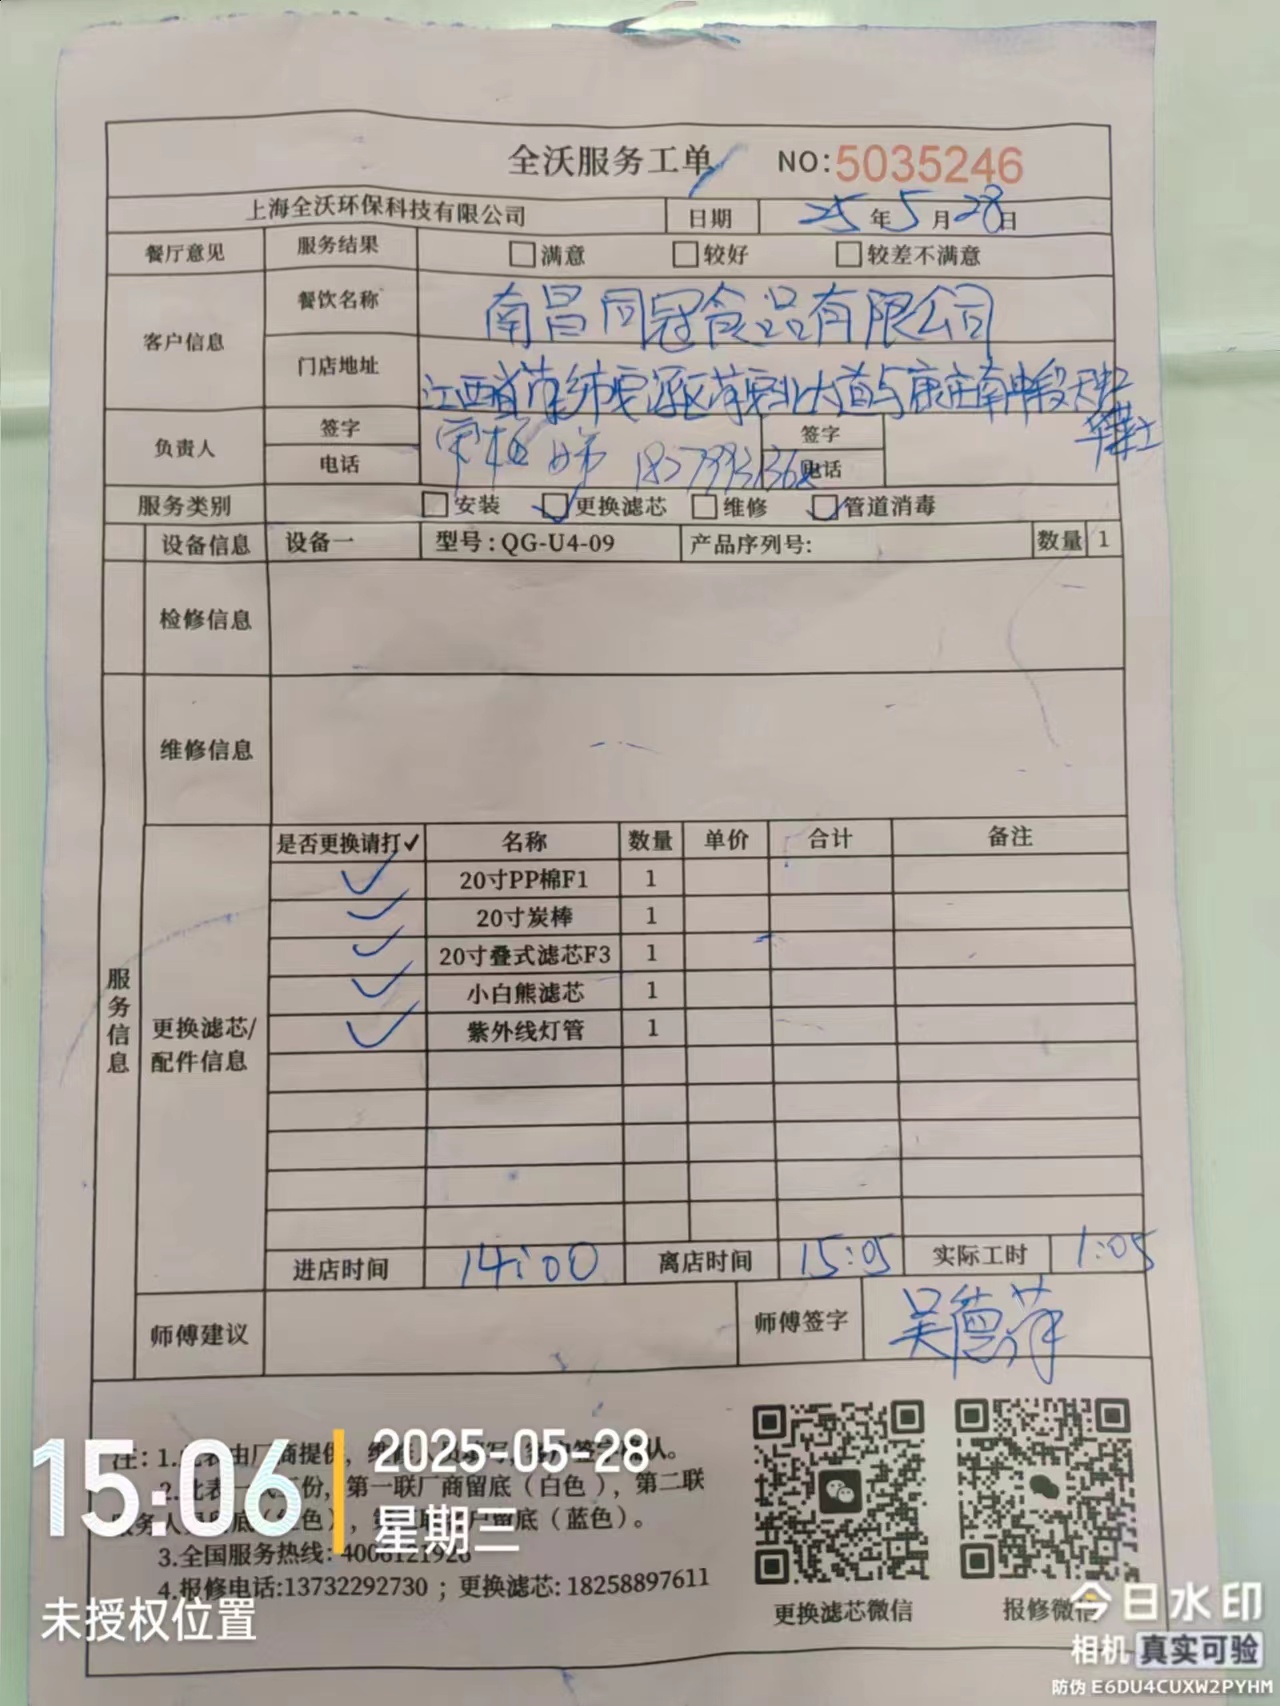 全沃服务工单 NO:5035246
上海全沃环保科技有限公司 日期 25年5月28日
餐厅意见 服务结果 □满意 □较好 □较差不满意
客户信息 餐饮名称 南昌同冠食品有限公司
门店地址 江西省
大道与康庄南
负责人 签字 签字
电话 电话
服务类别 □安装 ☑更换滤芯 □维修 ☑管道消毒
设备信息 设备一 型号:QG-U4-09 产品序列号: 数量 1
检修信息
维修信息
服务信息
更换滤芯/
配件信息
是否更换请打✓ 名称 数量 单价 合计 备注
✓ 20寸PP棉F1 1
✓ 20寸炭棒 1
✓ 20寸叠式滤芯F3 1
✓ 小白熊滤芯 1
✓ 紫外线灯管 1
进店时间 14:00 离店时间 15:05 实际工时 1:05
师傅建议 师傅签字 吴德萍
注:1.此表由厂商提供,
2.此表一式三份,第一联厂商留底(白色),第二联
服务人员留底(红色),第三联客户留底(蓝色)。
3.全国服务热线:4006121926
4.报修电话:13732292730 ; 更换滤芯:18258897611
更换滤芯微信 报修微信
15:06
2025-05-28
星期三
未授权位置
今日水印
相机 真实可验
防伪 E6DU4CUXW2PYHM